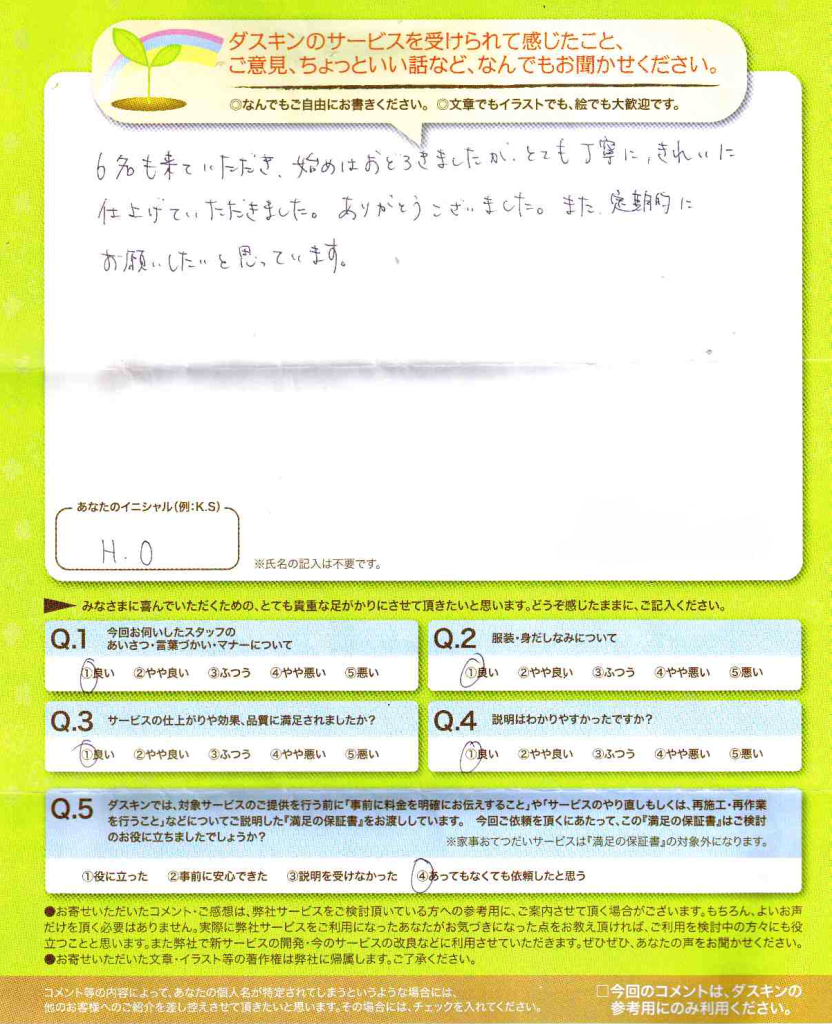 ダスキンのサービスを受けられて感じたこと、
ご意見、ちょっといい話など、なんでもお聞かせください。
◎なんでもご自由にお書きください。 ◎文章でもイラストでも、絵でも大歓迎です。
6名も来ていただき、始めはおどろきましたが、とても丁寧に、きれいに
仕上げていただきました。ありがとうございました。また、定期的に
お願いしたいと思っています。
あなたのイニシャル(例:K.S)
H.O
※氏名の記入は不要です。
みなさまに喜んでいただくための、とても貴重な足がかりにさせて頂きたいと思います。どうぞ感じたままに、ご記入ください。
Q.1 今回お伺いしたスタッフの
あいさつ・言葉づかい・マナーについて
①良い ②やや良い ③ふつう ④やや悪い ⑤悪い
Q.2 服装・身だしなみについて
①良い ②やや良い ③ふつう ④やや悪い ⑤悪い
Q.3 サービスの仕上がりや効果、品質に満足されましたか?
①良い ②やや良い ③ふつう ④やや悪い ⑤悪い
Q.4 説明はわかりやすかったですか?
①良い ②やや良い ③ふつう ④やや悪い ⑤悪い
Q.5 ダスキンでは、対象サービスのご提供を行う前に「事前に料金を明確にお伝えすること」や「サービスのやり直しもしくは、再施工・再作業
を行うこと」などについてご説明した『満足の保証書』をお渡ししています。 今回ご依頼を頂くにあたって、この『満足の保証書』はご検討
のお役に立ちましたでしょうか?
※家事おてつだいサービスは『満足の保証書』の対象外になります。
①役に立った ②事前に安心できた ③説明を受けなかった ④あってもなくても依頼したと思う
●お寄せいただいたコメント・ご感想は、弊社サービスをご検討頂いている方への参考用に、ご案内させて頂く場合がございます。もちろん、よいお声
だけを頂く必要はありません。実際に弊社サービスをご利用になったあなたがお気づきになった点をお教え頂ければ、ご利用を検討中の方々にも役
立つことと思います。また弊社で新サービスの開発・今のサービスの改良などに利用させていただきます。ぜひぜひ、あなたの声をお聞かせください。
●お寄せいただいた文章・イラスト等の著作権は弊社に帰属します。ご了承ください。
コメント等の内容によって、あなたの個人名が特定されてしまうというような場合には、
他のお客様へのご紹介を差し控えさせて頂きたいと思います。その場合には、チェックを入れてください。
□今回のコメントは、ダスキンの
参考用にのみ利用ください。